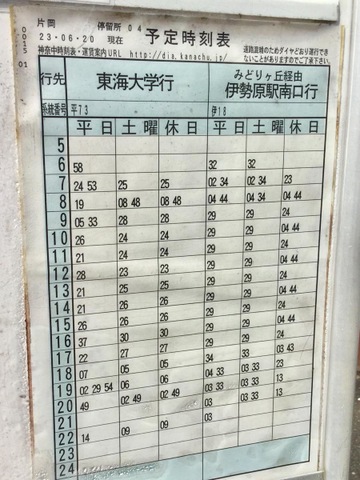 片岡 停留所 04
23-06-20 現在 予定時刻表
神奈中時刻表・運賃案内URL http://dia.kanachu.jp/
道路混雑のためダイヤどおり運行できないことがありますのでご了承下さい。
0015
01
行先 東海大学行 みどりヶ丘経由 伊勢原駅南口行
系統番号 平73 伊18
平日 土曜 休日 平日 土曜 休日
5
6 58 32 32
7 24 53 25 25 02 34 02 34 23
8 19 08 48 08 48 04 44 04 44 04 44
9 05 33 28 28 29 29 24
10 26 24 24 29 29
11 21 24 24 29 29
12 28 23 23 29 29
13 21 25 25 29 29
14 21 26 26 29 29
15 26 26 26 29 29
16 37 30 30 29 29
17 22 27 27 34 33 03 43
18 07 05 05 04 33 03 33 23
19 02 29 54 06 06 03 33 03 33 13
20 49 02 49 02 49 03 03 13
21 03
22 14 09 09
23
24